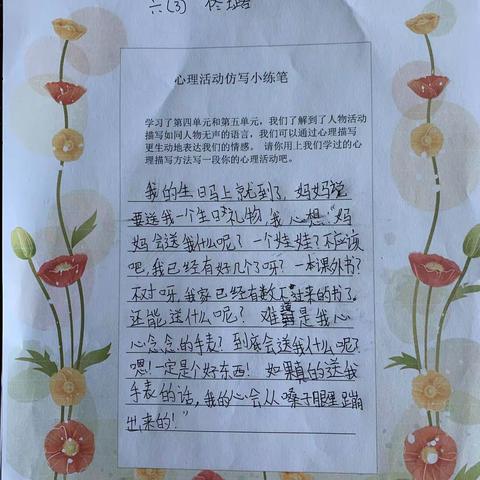 六(3) 佟璐
心理活动仿写小练笔
学习了第四单元和第五单元，我们了解到了人物活动
描写如同人物无声的语言，我们可以通过心理描写
更生动地表达我们的情感。 请你用上我们学过的心
理描写方法写一段你的心理活动吧。
我的生日马上就到了，妈妈说
要送我一个生日礼物，我心想“妈
妈会送我什么呢？一个娃娃？不应该
吧，我已经有好几个了呀？一本课外书？
不对呀，我家已经有数不过来的书了。
还能送什么呢？难道是我心
心念念的手表？到底会送我什么呢？
嗯！一定是个好东西！如果真的送我
手表的话，我的心会从嗓子眼里蹦
出来的！”